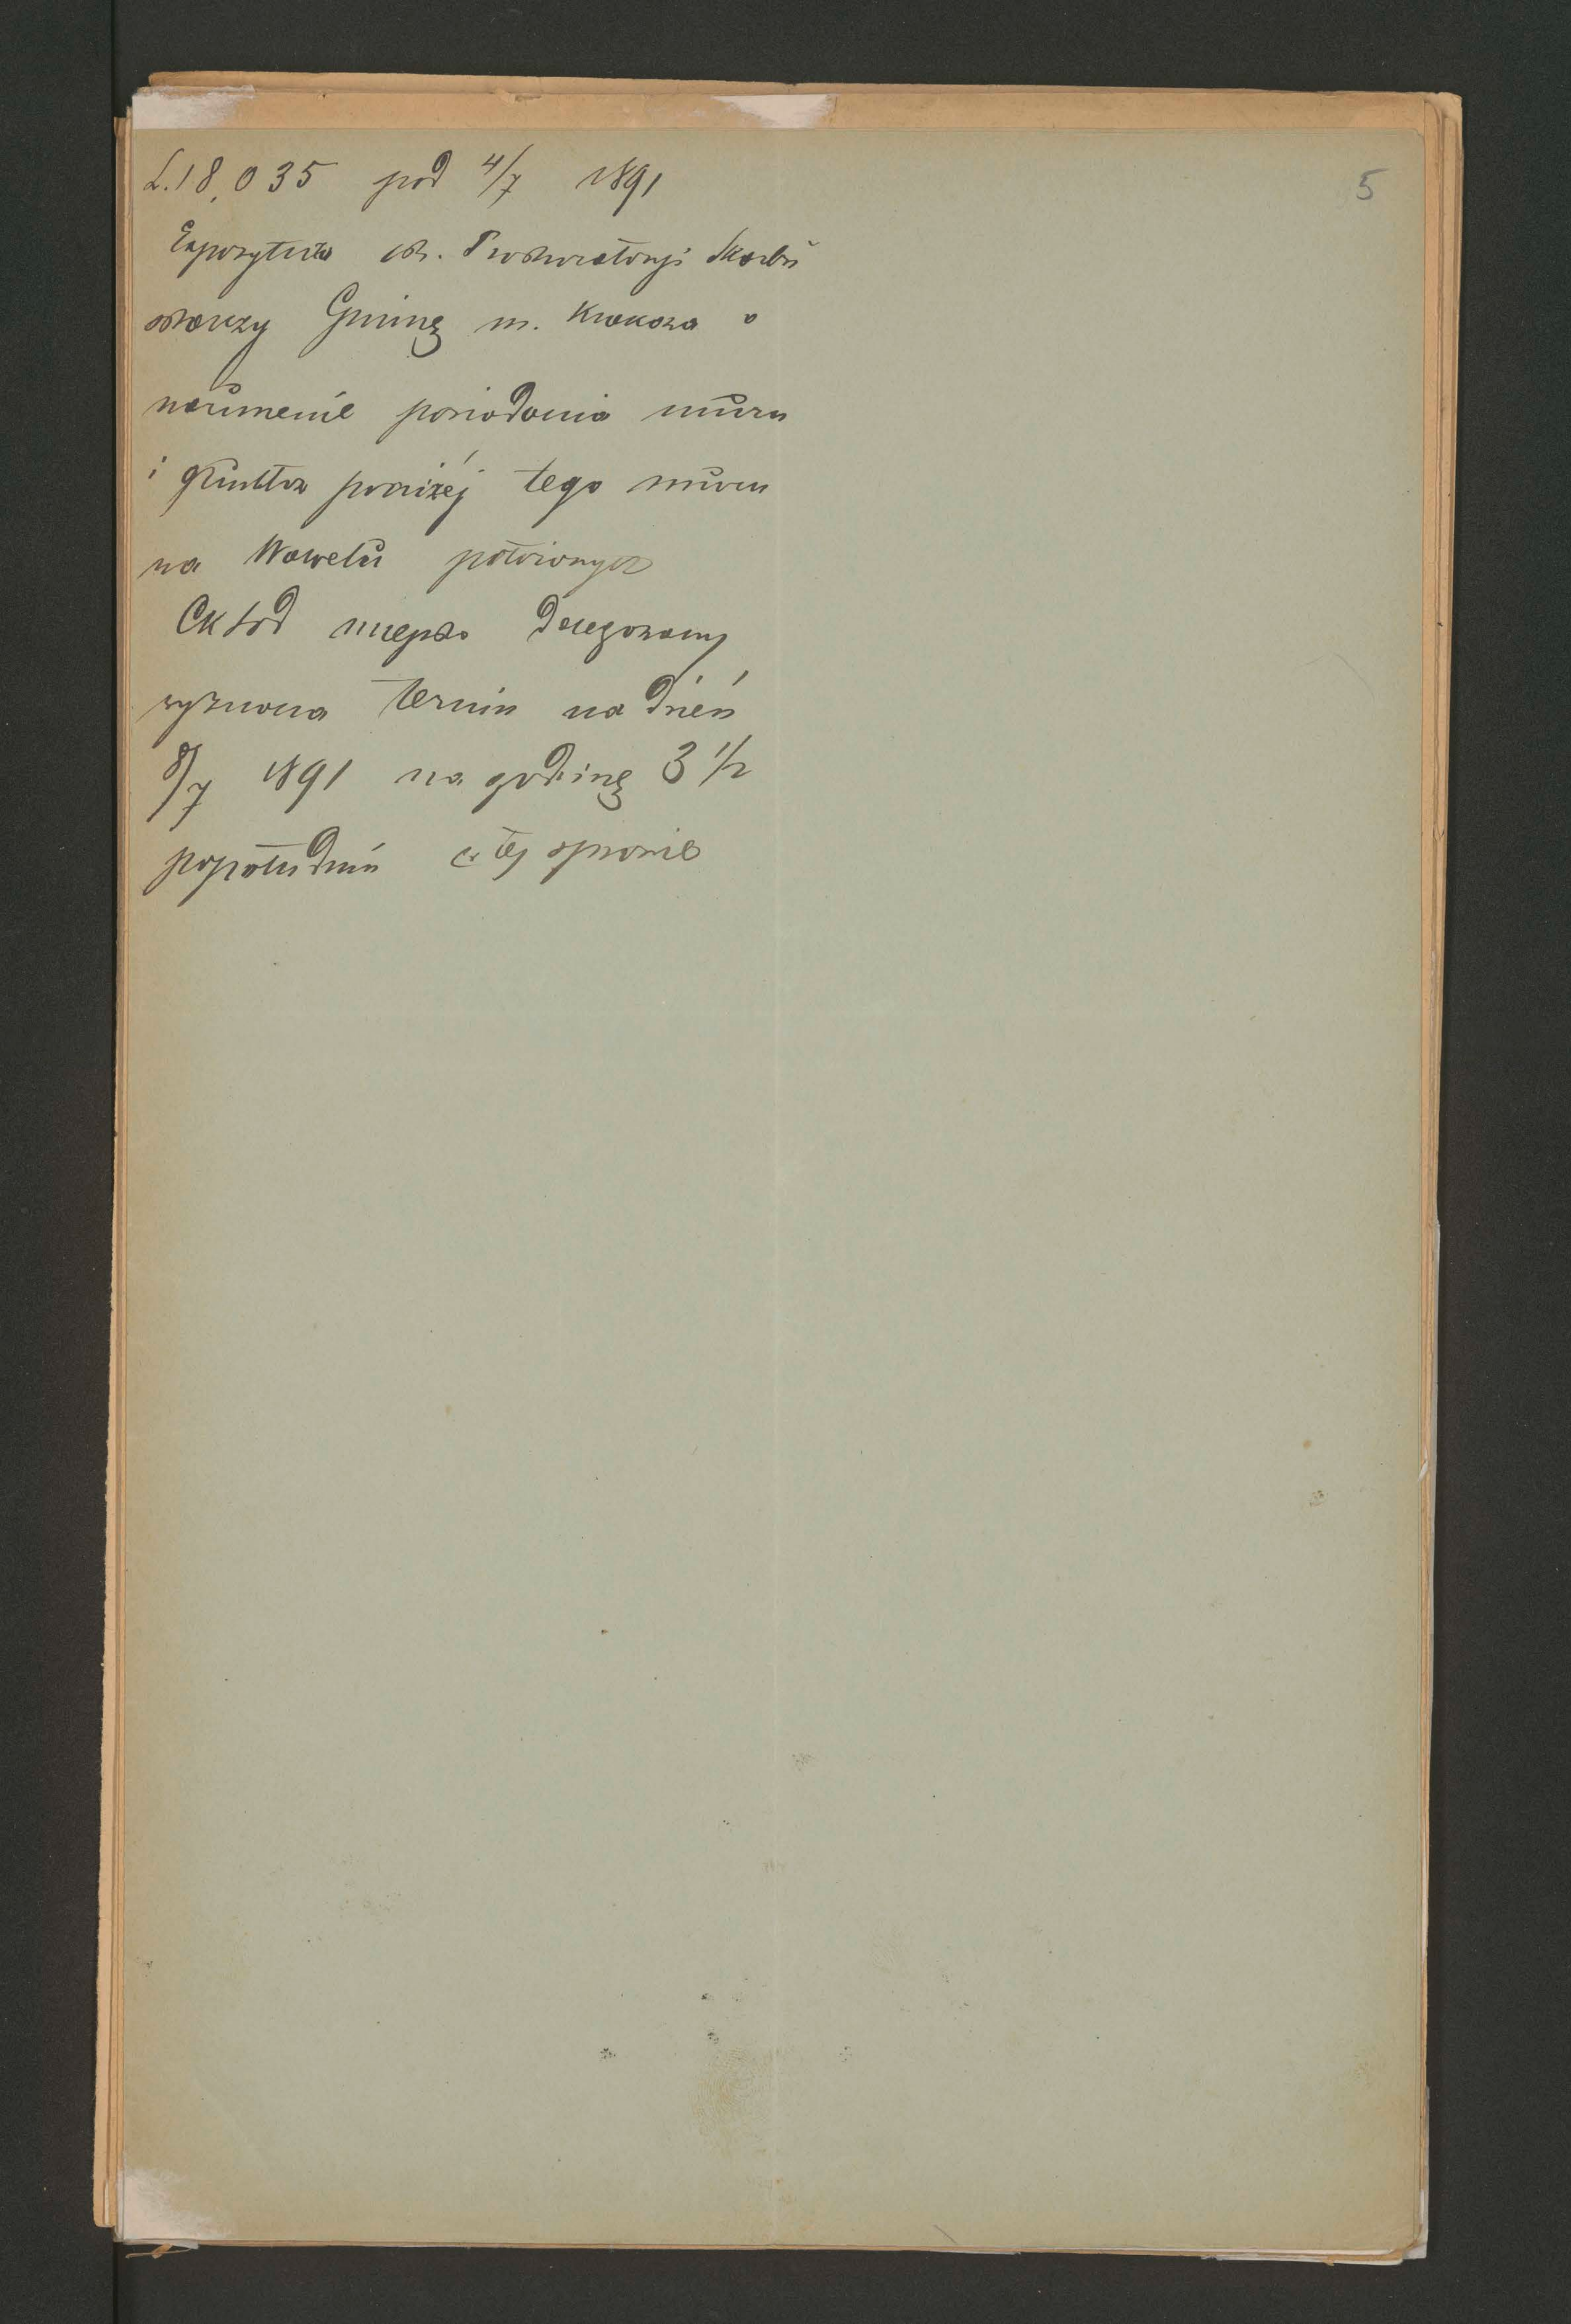 L. 18,035 pod 4/7 1891
5
Expozytura ck. Prokuratoryi Skarbu
skarży Gminę m. Krakowa o
naruszenie posiadania muru
i gruntów poniżéj tego muru
na Wawelu położonych
CK Sąd miejsko delegowany
wyznacza termin na dzień
8/7 1891 na godzinę 3 1/2
popołudniu w téj sprawie